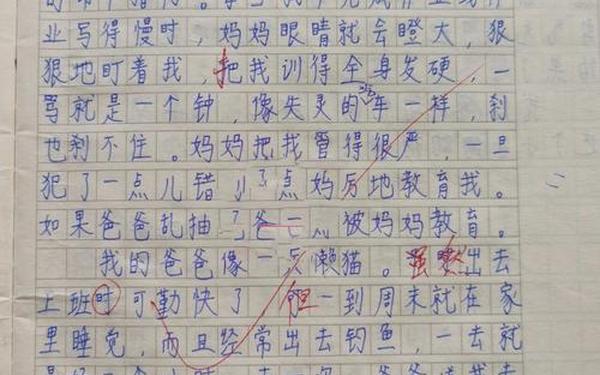 业写得慢时，妈妈眼睛就会瞪大，狠
狠地盯着我，把我训得全身发硬，一
骂就是一个钟，像失灵的汽车一样，刹
也刹不住。妈妈把我管得很严，一旦
犯了一点儿错
点妈
厉地教育我。
如果爸爸乱抽
爸
被妈妈教育。
我的爸爸像一只懒猫。虽然出去
上班时可勤快了
但一到周末就在家
里睡觉，而且经常出去钓鱼，一去就